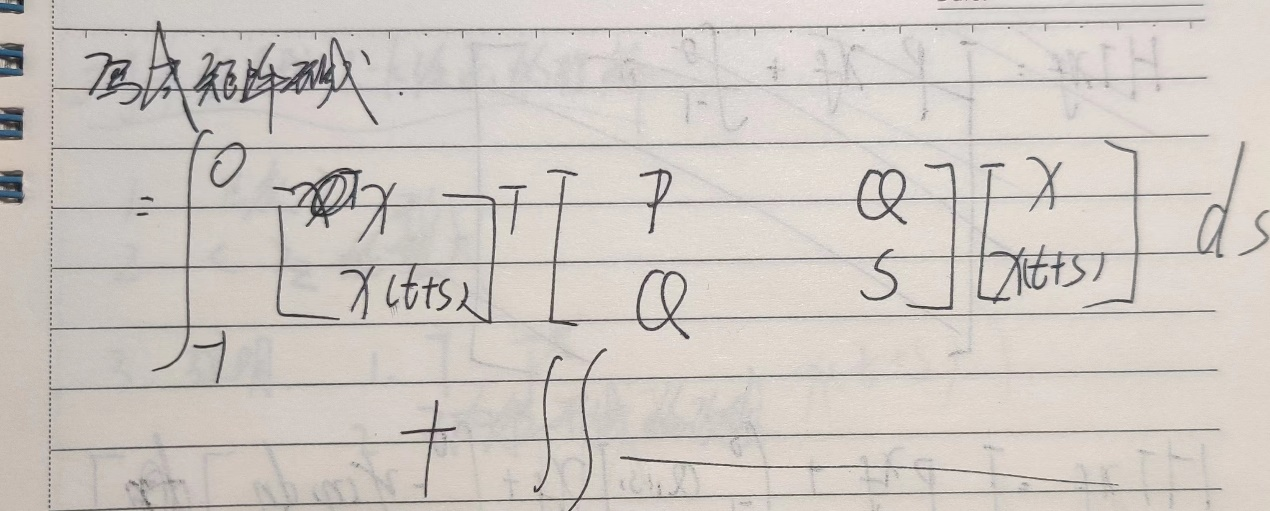 写成矩阵形式.
= ∫_{-1}^{0} [x ; x(t+s)]^T [P Q ; Q S] [x ; x(t+s)] ds
+ ∬